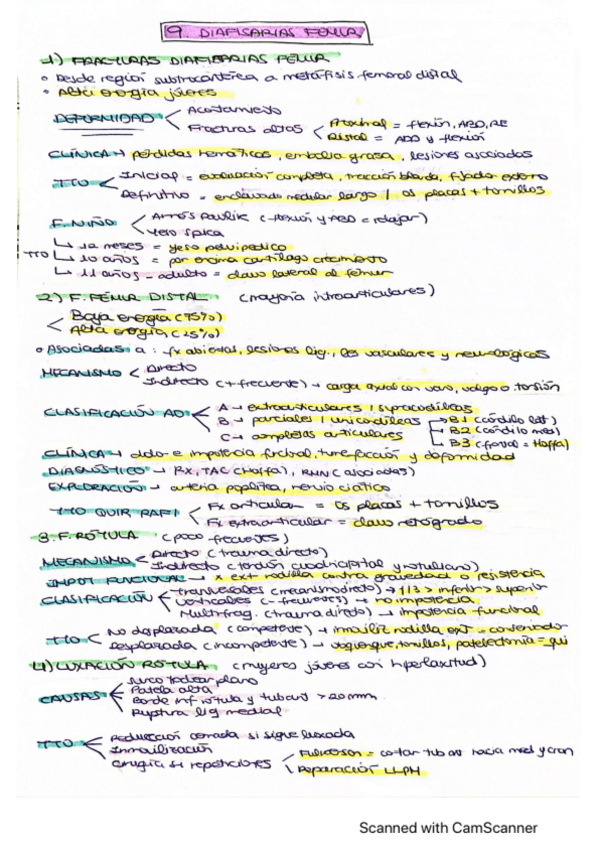 9. DIAFISARIAS FÉMUR
1) FRACTURAS DIAFISARIAS FÉMUR
• Desde región subtrocantérica a metáfisis femoral distal
• Alta energía jóvenes
DEFORMIDAD
Acortamiento
Fracturas altas
Proximal = flexión, ABD, RE
Distal = ADD y flexión
CLÍNICA → pérdidas hemáticas, embolia grasa, lesiones asociadas
TTO
Inicial = evaluación completa, tracción blanda, fijador externo
Definitivo = enclavado medular largo / OS placas + tornillos
F. NIÑO
Arnés Paulik (-flexión y ABD = relajar)
Yeso spica
TTO
12 meses = yeso pelvipedico
10 años = por encima cartílago crecimiento
11 años - adulto = clavo lateral al fémur
2) F. FÉMUR DISTAL (mayoría intraarticulares)
Baja energía (75%)
Alta energía (25%)
• Asociadas a: fx abiertas, lesiones lig., les vasculares y neurológicas
MECANISMO
Directo
Indirecto (+ frecuente) → carga axial con varo, valgo o torsión
CLASIFICACIÓN AO
A → extraarticulares / supracondíleas
B → parciales / unicondíleas
B1 (cóndilo lat)
B2 (cóndilo med)
B3 (frontal = Hoffa)
C → completas articulares
CLÍNICA → dolor e impotencia funcional, tumefacción y deformidad
DIAGNÓSTICO → RX, TAC (Hoffa), RMN (asociadas)
EXPLORACIÓN → arteria poplítea, nervio ciático
TTO QUIR RAFI
Fx articular = OS placas + tornillos
Fx extraarticular = clavo retrógrado
3. F. RÓTULA (poco frecuentes)
MECANISMO
Directo (trauma directo)
Indirecto (tendón cuadricipital y rotuliano)
IMPOT FUNCIONAL → x ext rodilla contra gravedad o resistencia
CLASIFICACIÓN
transversales (mecanismo directo) → 1/3 > inferior > superior
verticales (- frecuentes) → no impotencia
Multifrag. (trauma directo) → impotencia funcional
TTO
No desplazada (competente) → inmoviliz rodilla ext = conservador
Desplazada (incompetente) → tornillos, patelectomía = qui
4) LUXACIÓN RÓTULA (mujeres jóvenes con hiperlaxitud)
CAUSAS
Surco troclear plano
Patela alta
Borde inf rótula y tub ant > 20 mm
Ruptura lig medial
TTO
Reducción cerrada si sigue luxada
Inmovilización
Cirugía si repeticiones
Fulkerson = cortar tub ant hacia med y cran
Reparación LLPH
Scanned with CamScanner